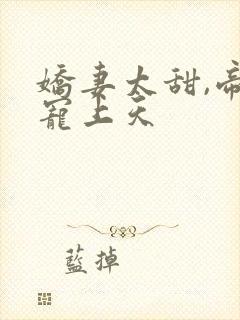 嬌妻太甜,帝
寵上天
藍掉